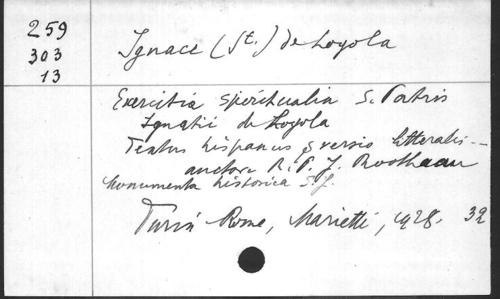 259
303
13
Ignace (St.) de Loyola
Exercitia spiritualia S. Patris
Ignatii de Loyola
Textus hispanus & versio litteralis --
auctore R. P. J. Roothaan
Monumenta historica S.J.
Turin Rome, Marietti, 1928. 32